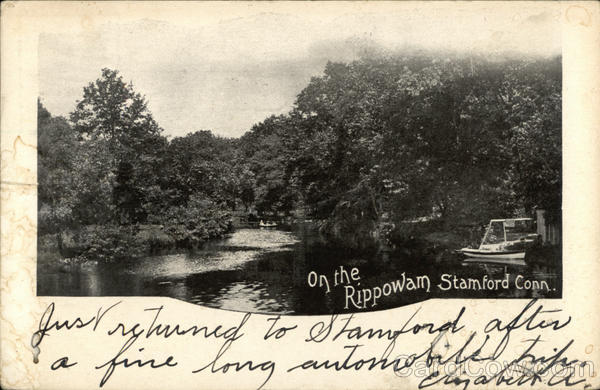 On the
Rippowam Stamford Conn.
Just returned to Stamford, after
a fine long automobile trip
Elizabeth
CardCow.com